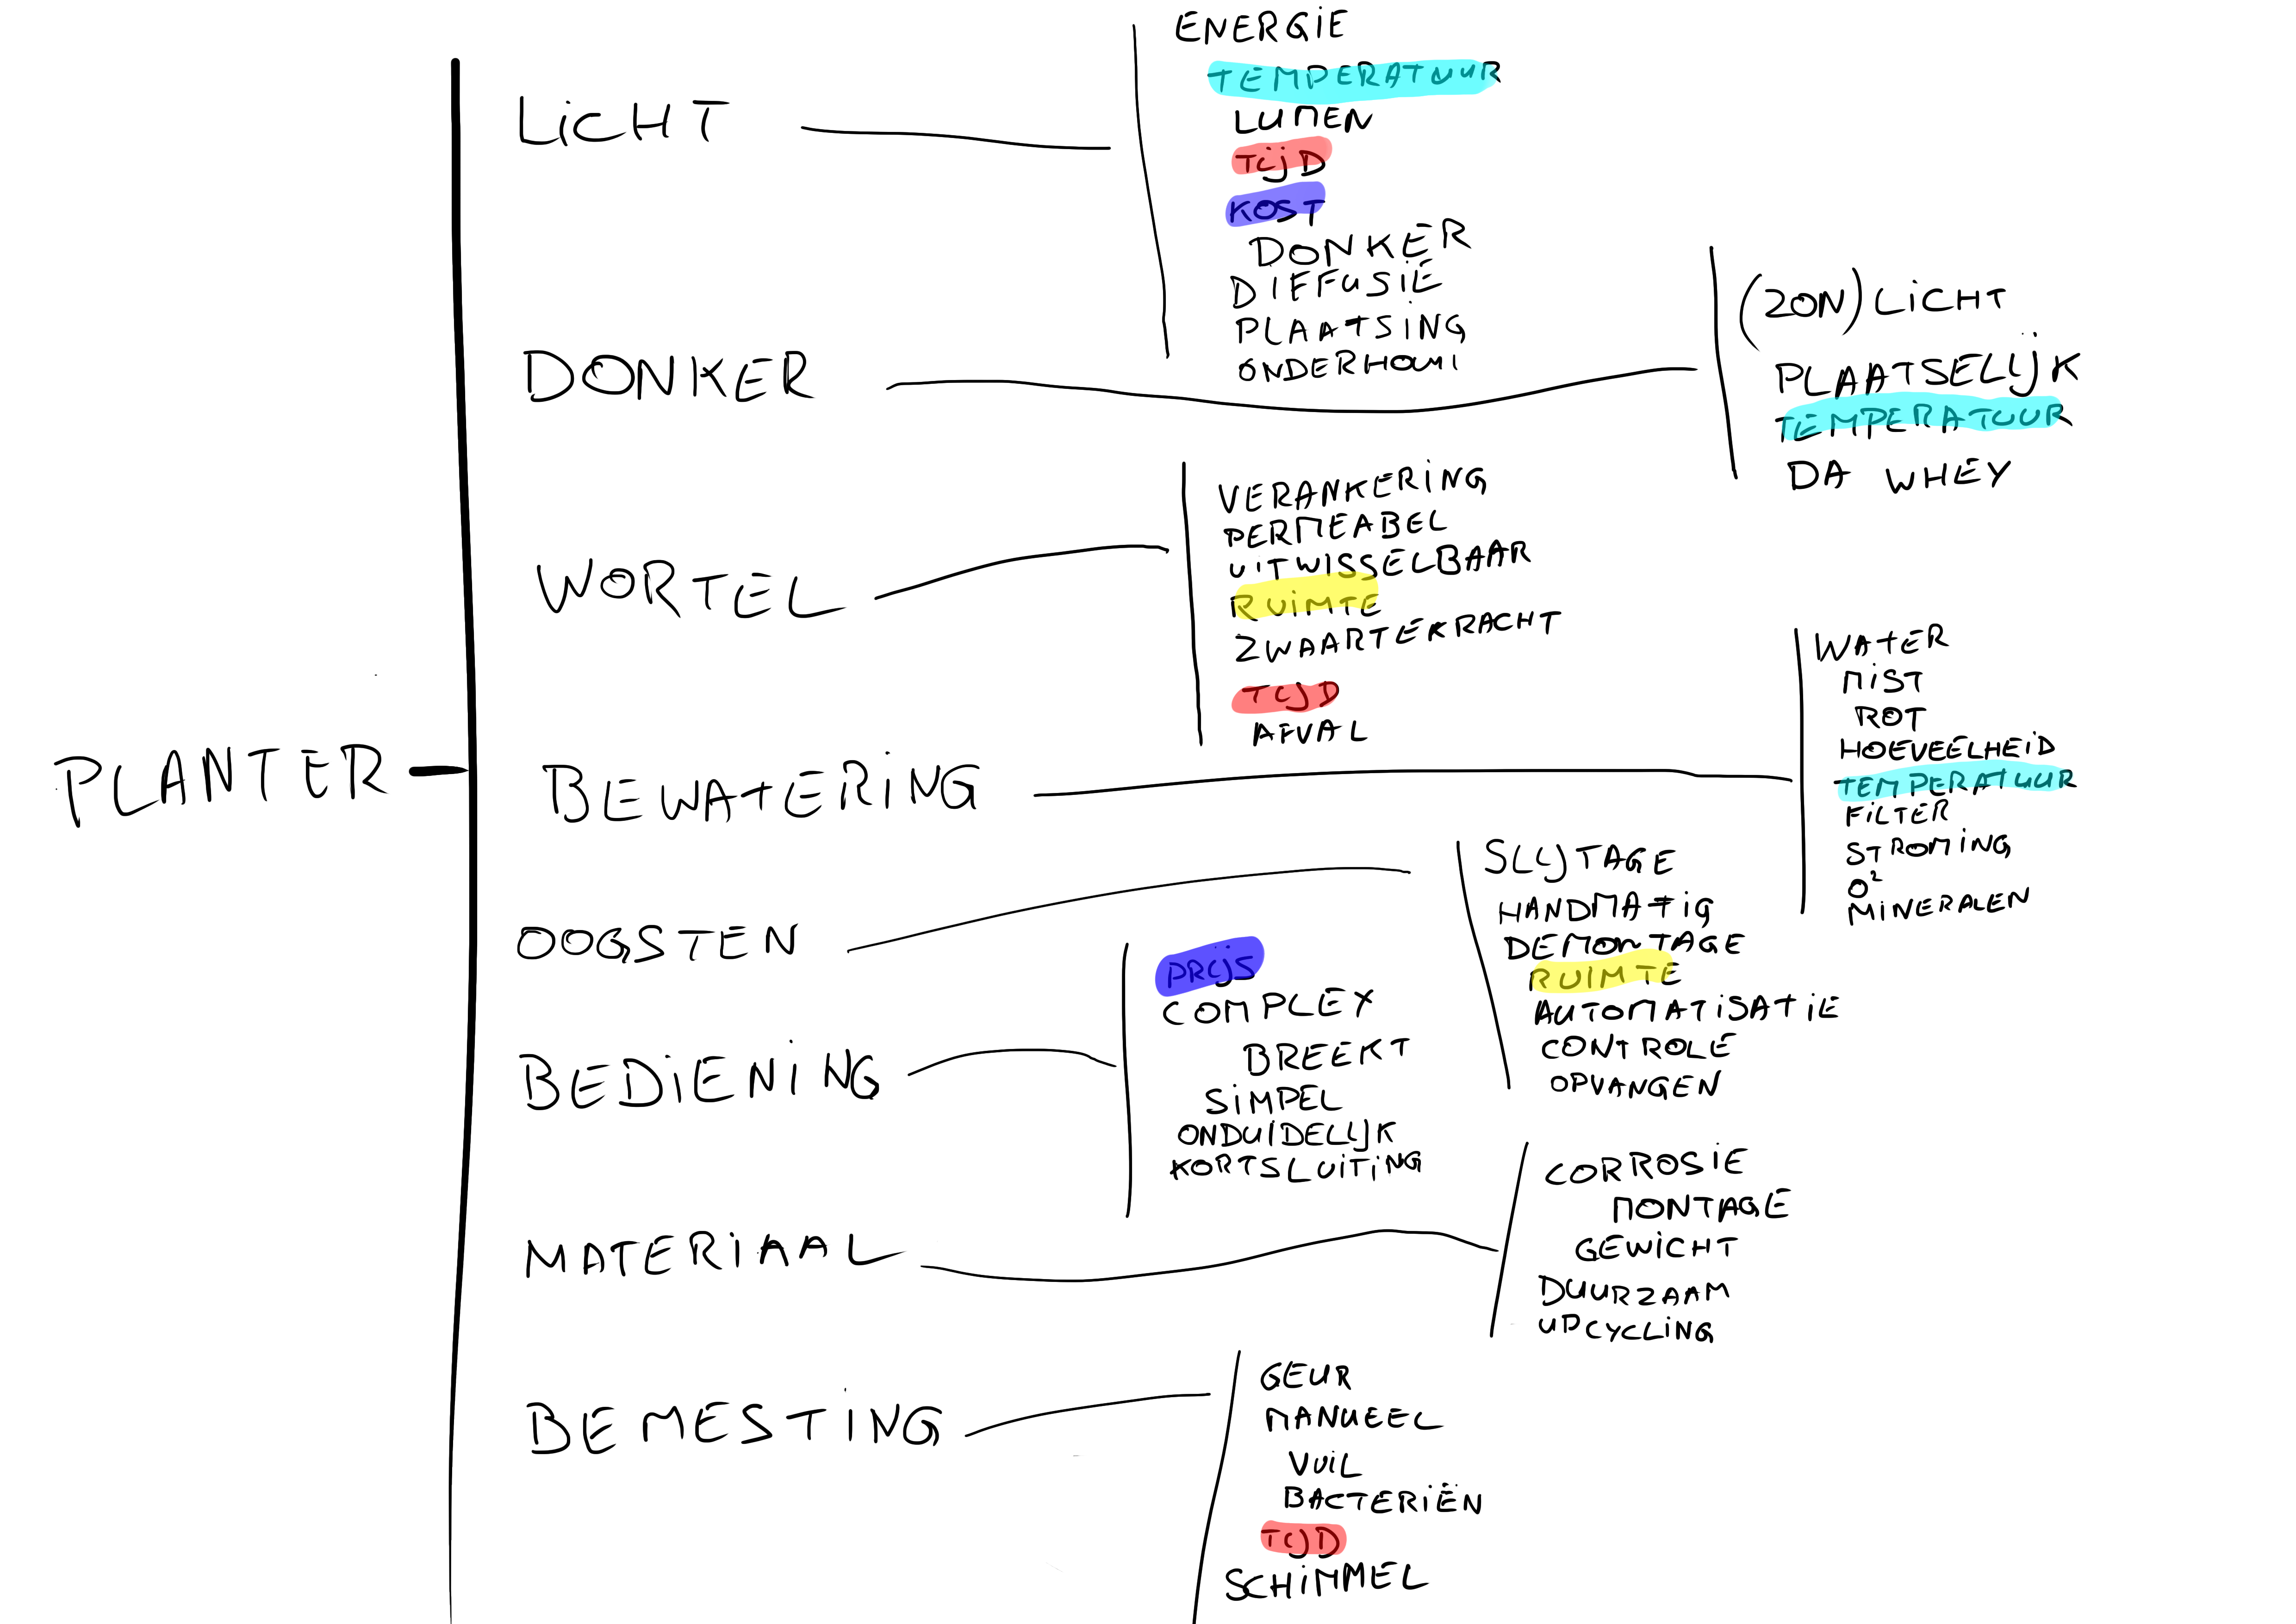 PLANTER
LiCHT
ENERGiE
TEMPERATUUR
LUMEN
TijD
KOST
DONKER
DIFFUSIE
PLAATSiNG
DONKER
(ZON)LiCHT
PLAATSELijK
TEMPERATUUR
DA WHEY
WORTEL
VERANKERiNG
PERMEABEL
UiTWISSELBAAR
RUiMTE
ZWAARTEKRACHT
TijD
AFVAL
BEWATERiNG
WATER
MiST
ROT
HOEVEELHEiD
TEMPERATUUR
FiLTER
STROMiNG
O²
MiNERALEN
OOGSTEN
SLijTAGE
HANDMATiG
DEMONTAGE
RUIMTE
AUTOMATiSATiE
CONTROLE
OPVANGEN
BEDiENiNG
PRijS
COMPLEX
BREEKT
SiMPEL
ONDUiDELijK
KORTSLUiTiNG
MATERiAAL
CORROSiE
MONTAGE
GEWiCHT
DUURZAAM
UPCYCLiNG
BEMESTiNG
GEUR
MANUEEL
VUiL
BACTERiËN
TijD
SCHiMMEL